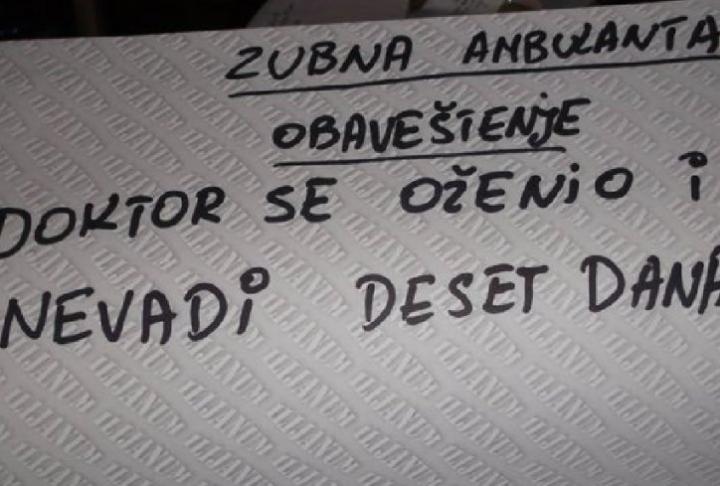 ZUBNA AMBULANTA
OBAVEŠTENJE
DOKTOR SE OŽENIO I
NEVADI DESET DANA